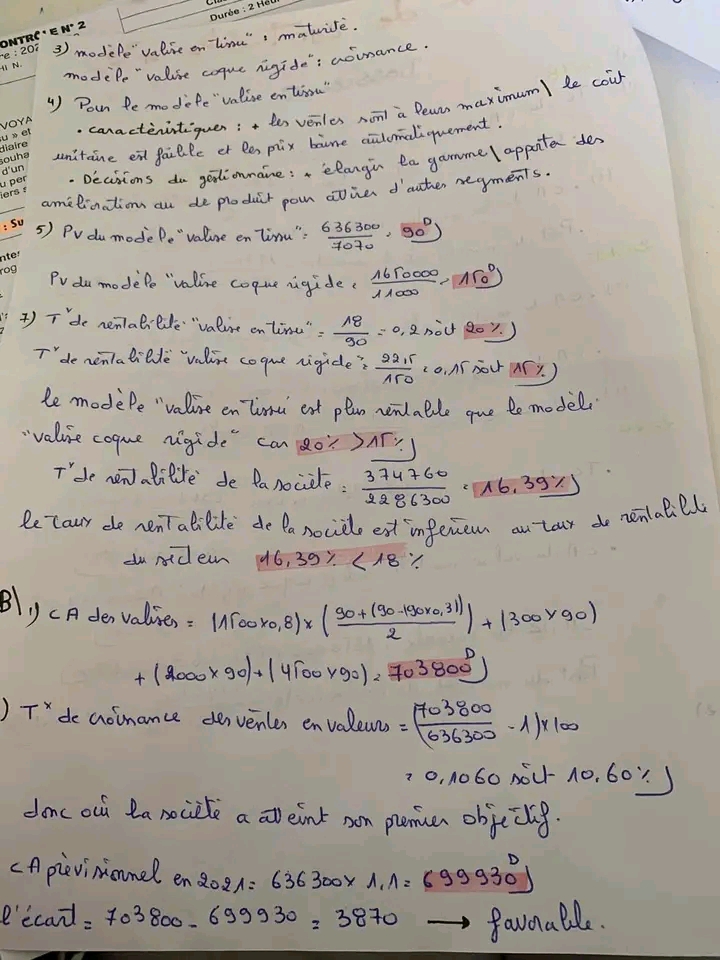 CONTRÔLE N° 2
Durée : 2 Heur
3) modèle "valise en tissu" : maturité.
modèle "valise coque rigide" : croissance.
4) Pour le modèle "valise en tissu"
• caractèristiques : + les ventes sont à leurs maximum \ le coût
unitaire est faible et les prix baisse automatiquement.
• Décisions du gestionnaire : + élargir la gamme \ apporter des
améliorations au de produit pour attirer d'autres segments.
5) PV du modèle "valise en tissu" = 636300/7070 = 90D
PV du modèle "valise coque rigide = 1650000/11000 = 150D
7) Tx de rentabilité "valise en tissu" = 18/90 = 0,2 soit 20%
Tx de rentabilité "valise coque rigide" = 22,5/150 = 0,15 soit 15%
le modèle "valise en tissu" est plus rentable que le modèle
"valise coque rigide" car 20% > 15%
Tx de rentabilité de la société = 374760/2286300 = 16,39%
le taux de rentabilité de la société est inférieur au taux de rentabilité
du secteur 16,39% < 18%
B\ 1) CA des valises = (1500x0,8) x ((90+(90-(90x0,3)))/2) + (300x90)
+ (2000x90) + (4500x90) = 703800D
) Tx de croissance des ventes en valeurs = (703800/636300 - 1) x 100
= 0,1060 soit 10,60%
donc oui la société a atteint son premier objectif.
CA prévisionnel en 2021 = 636300 x 1,1 = 699930D
l'écart = 703800 - 699930 = 3870 → favorable.